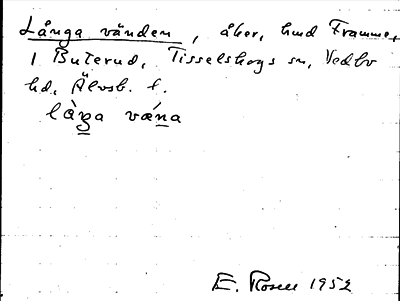 Långa vänden, åker, hmd Framme,
1 Buterud, Tisselskogs sn, Vedbo
hd, Älvsb. l.
låŋa væna
E. Rosell 1952